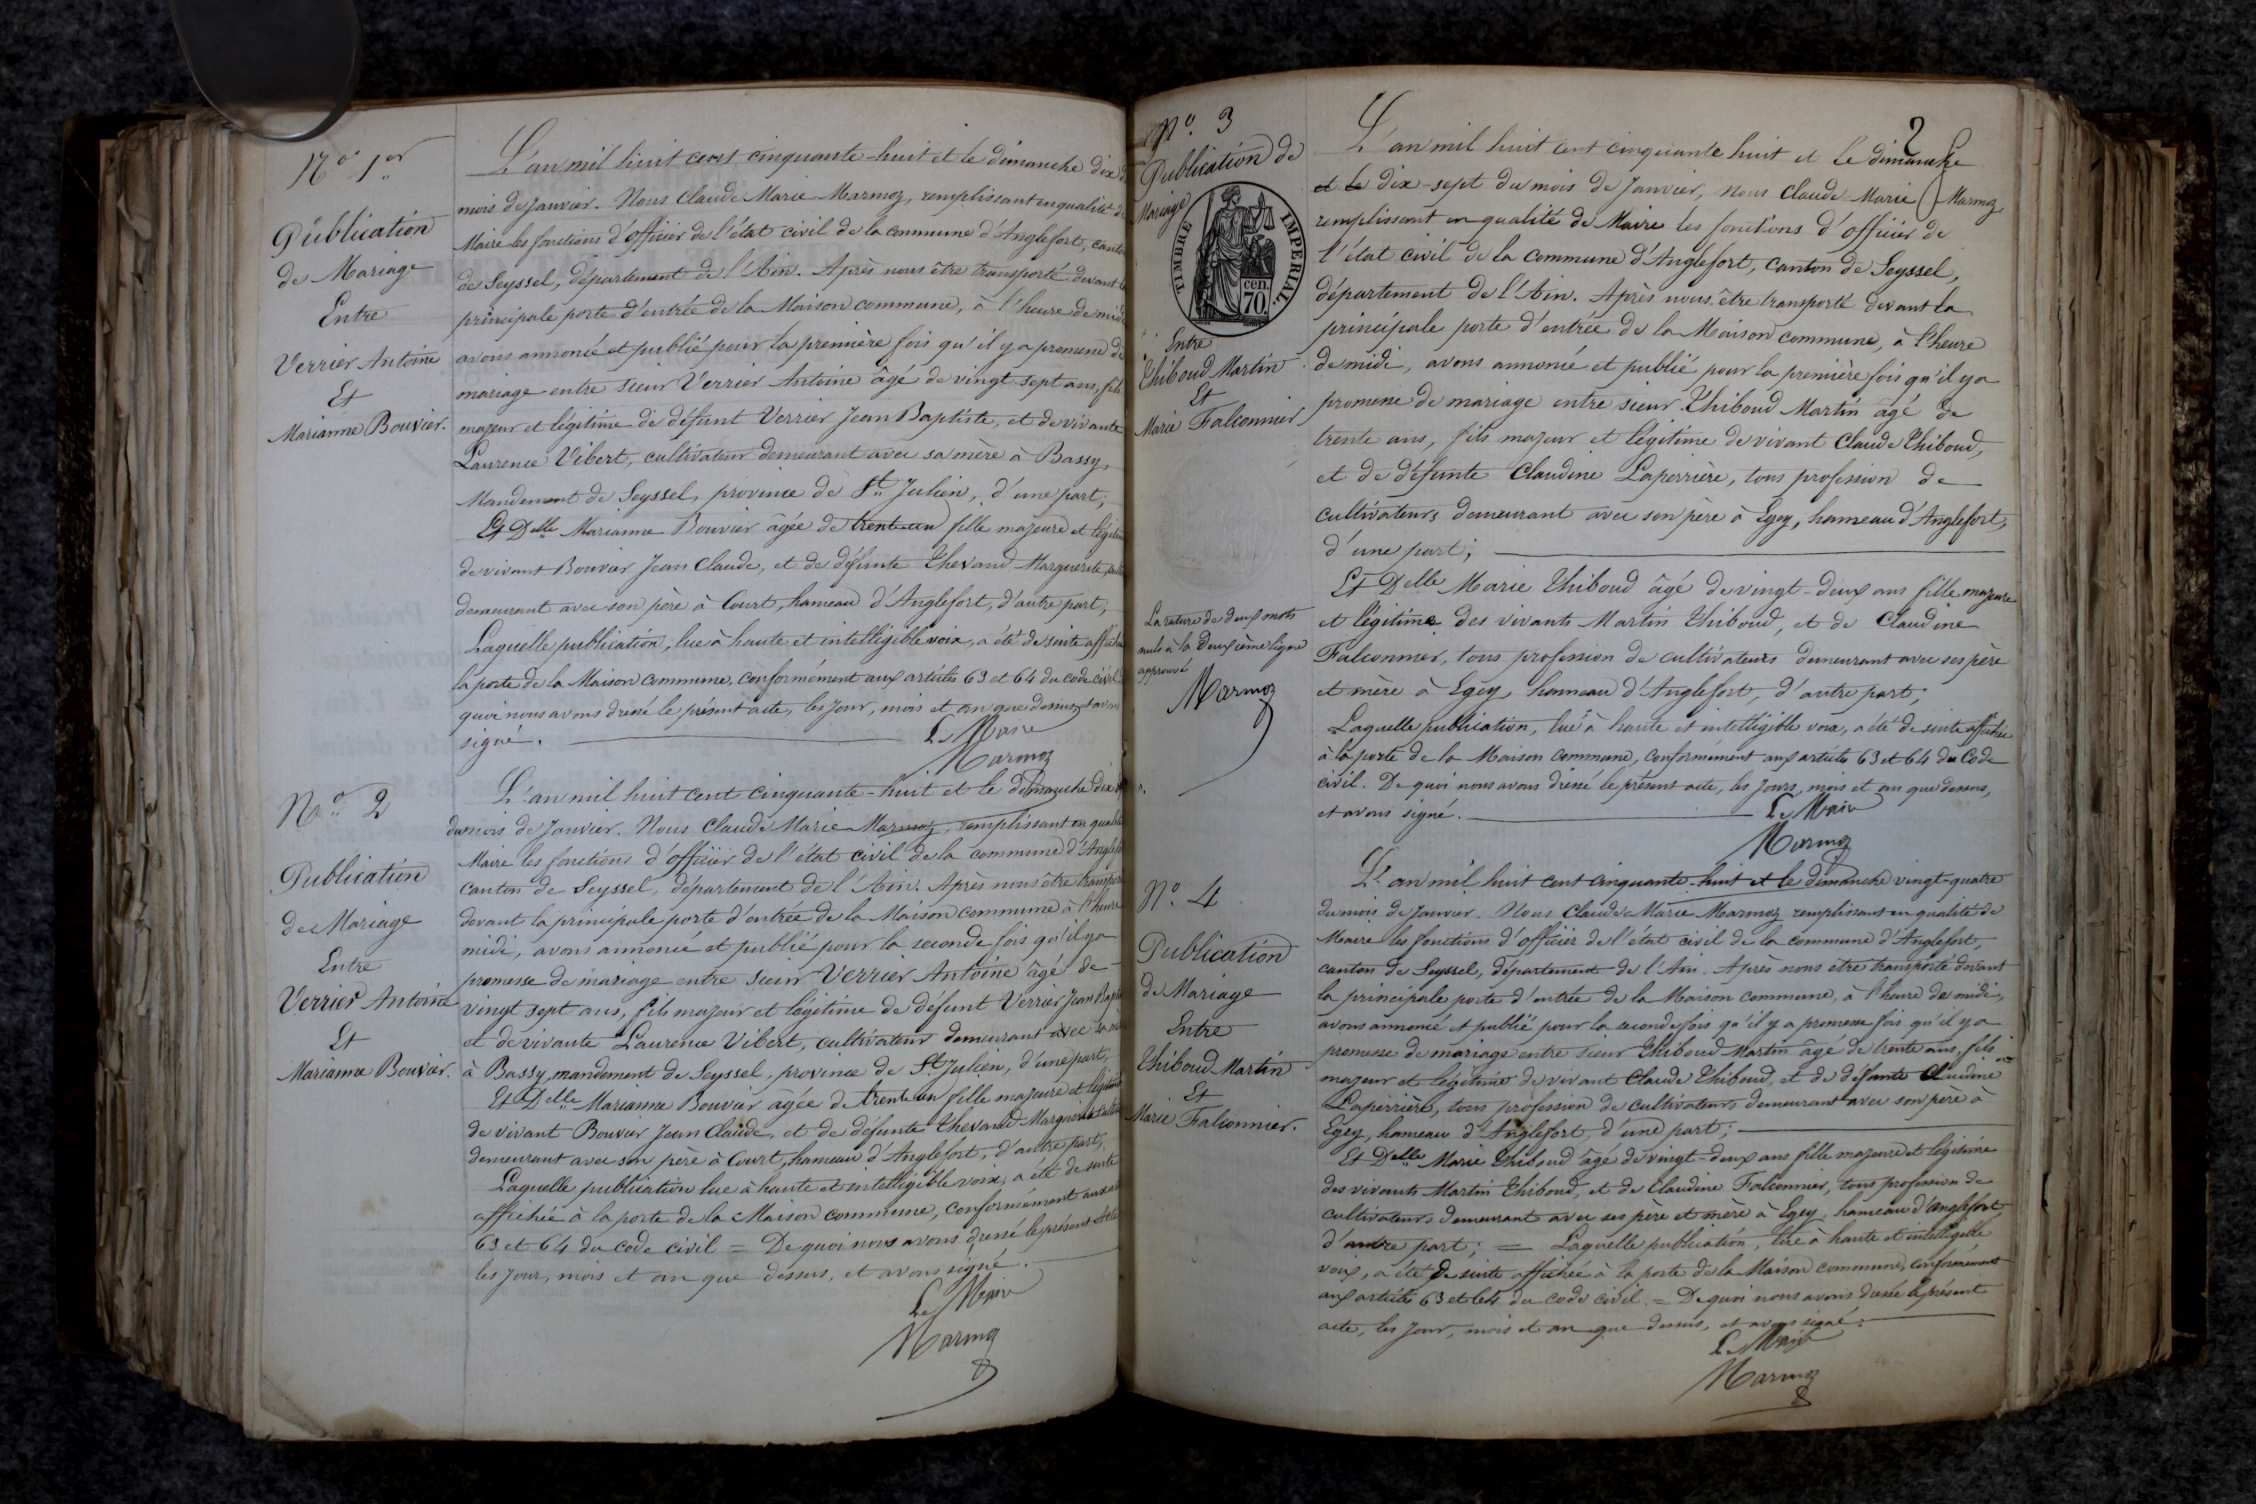 No 1er
Publication
de Mariage
Entre
Verrier Antoine
Et
Marianne Bouvier.
L'an mil huit cent cinquante-huit et le dimanche dix
mois de Janvier. Nous Claude Marie Marmoz, remplissant en qualité de
Maire les fonctions d'officier de l'état civil de la commune d'Anglefort, canton
de Seyssel, département de l'Ain. Après nous être transporté devant la
principale porte d'entrée de la Maison commune, à l'heure de midi
avons annoncé et publié pour la première fois qu'il y a promesse de
mariage entre sieur Verrier Antoine âgé de vingt-sept ans, fils
majeur et légitime de défunt Verrier Jean Baptiste, et de vivante
Laurence Vibert, cultivateur demeurant avec sa mère à Bassy,
Mandement de Seyssel, province de St Julien, d'une part;
Et Delle Marianne Bouvier âgée de trente-un fille majeure et légitime
de vivant Bouvier Jean Claude, et de défunte Thevand Marguerite,
demeurant avec son père à Court, hameau d'Anglefort, d'autre part,
Laquelle publication, lue à haute et intelligible voix, a été de suite affichée
la porte de la Maison commune, conformément aux articles 63 et 64 du code civil
quoi nous avons dressé le présent acte, les jour, mois et an que dessus, et avons
signé.
Le Maire
Marmoz
No 2
Publication
de Mariage
Entre
Verrier Antoine
Et
Marianne Bouvier.
L'an mil huit cent cinquante-huit et le dimanche dix
du mois de Janvier. Nous Claude Marie Marmoz, remplissant en qualité
Maire les fonctions d'officier de l'état civil de la commune d'Anglefort
canton de Seyssel, département de l'Ain. Après nous être transporté
devant la principale porte d'entrée de la Maison commune à l'heure
midi, avons annoncé et publié pour la seconde fois qu'il y a
promesse de mariage entre sieur Verrier Antoine âgé de
vingt sept ans, fils majeur et légitime de défunt Verrier Jean Baptiste
et de vivante Laurence Vibert, cultivateur demeurant avec sa mère
à Bassy, mandement de Seyssel, province de St Julien, d'une part;
Et Delle Marianne Bouvier âgée de trente un fille majeure et légitime
de vivant Bouvier Jean Claude, et de défunte Thevand Marguerite
demeurant avec son père à Court, hameau d'Anglefort, d'autre part,
Laquelle publication lue à haute et intelligible voix, a été de suite
affichée à la porte de la Maison commune, conformément aux
63 et 64 du code civil = De quoi nous avons dressé le présent acte
les jour, mois et an que dessus, et avons signé.
Le Maire
Marmoz
2
No 3
Publication de
Mariage
TIMBRE IMPERIAL.
70 cen.
Entre
Thiboud Martin
Et
Marie Falconnier
L'an mil huit cent cinquante huit et le dimanche
et le dix-sept du mois de Janvier, nous Claude Marie Marmoz
remplissant en qualité de Maire les fonctions d'officier de
l'état civil de la commune d'Anglefort, canton de Seyssel,
département de l'Ain. Après nous être transporté devant la
principale porte d'entrée de la Maison commune, à l'heure
de midi, avons annoncé et publié pour la première fois qu'il y a
promesse de mariage entre sieur Thiboud Martin âgé de
trente ans, fils majeur et légitime de vivant Claude Thiboud,
et de défunte Claudine Laperrière, tous profession de
cultivateurs demeurant avec son père à Egey, hameau d'Anglefort,
d'une part;
Et Delle Marie Thiboud âgé de vingt-deux ans fille majeure
et légitime des vivants Martin Thiboud, et de Claudine
Falconnier, tous profession de cultivateurs demeurant avec ses père
et mère à Egey, hameau d'Anglefort, d'autre part;
Laquelle publication, lue à haute et intelligible voix, a été de suite affichée
à la porte de la Maison commune, conformément aux articles 63 et 64 du Code
civil. De quoi nous avons dressé le présent acte, les jours, mois et an que dessus,
et avons signé.
Le Maire
Marmoz
La rature de deux mots
nuls à la deuxième ligne
approuvé
Marmoz
No 4
Publication
de Mariage
Entre
Thiboud Martin
Et
Marie Falconnier.
L'an mil huit cent cinquante-huit et le dimanche vingt-quatre
du mois de Janvier. Nous Claude Marie Marmoz remplissant en qualité de
Maire les fonctions d'officier de l'état civil de la commune d'Anglefort,
canton de Seyssel, département de l'Ain. Après nous être transporté devant
la principale porte d'entrée de la Maison commune, à l'heure de midi,
avons annoncé et publié pour la seconde fois qu'il y a promesse fois qu'il y a
promesse de mariage entre sieur Thiboud Martin âgé de trente ans, fils
majeur et légitime de vivant Claude Thiboud, et de défunte Claudine
Laperrière, tous profession de cultivateurs demeurant avec son père à
Egey, hameau d'Anglefort, d'une part;
Et Delle Marie Thiboud âgé de vingt-deux ans fille majeure et légitime
des vivants Martin Thiboud, et de Claudine Falconnier, tous profession de
cultivateurs demeurant avec ses père et mère à Egey, hameau d'anglefort,
d'autre part; = Laquelle publication, lue à haute et intelligible
voix, a été de suite affichée à la porte de la Maison commune, conformément
aux articles 63 et 64 du code civil. = De quoi nous avons dressé le présent
acte, les jour, mois et an que dessus, et avons signé.
Le Maire
Marmoz